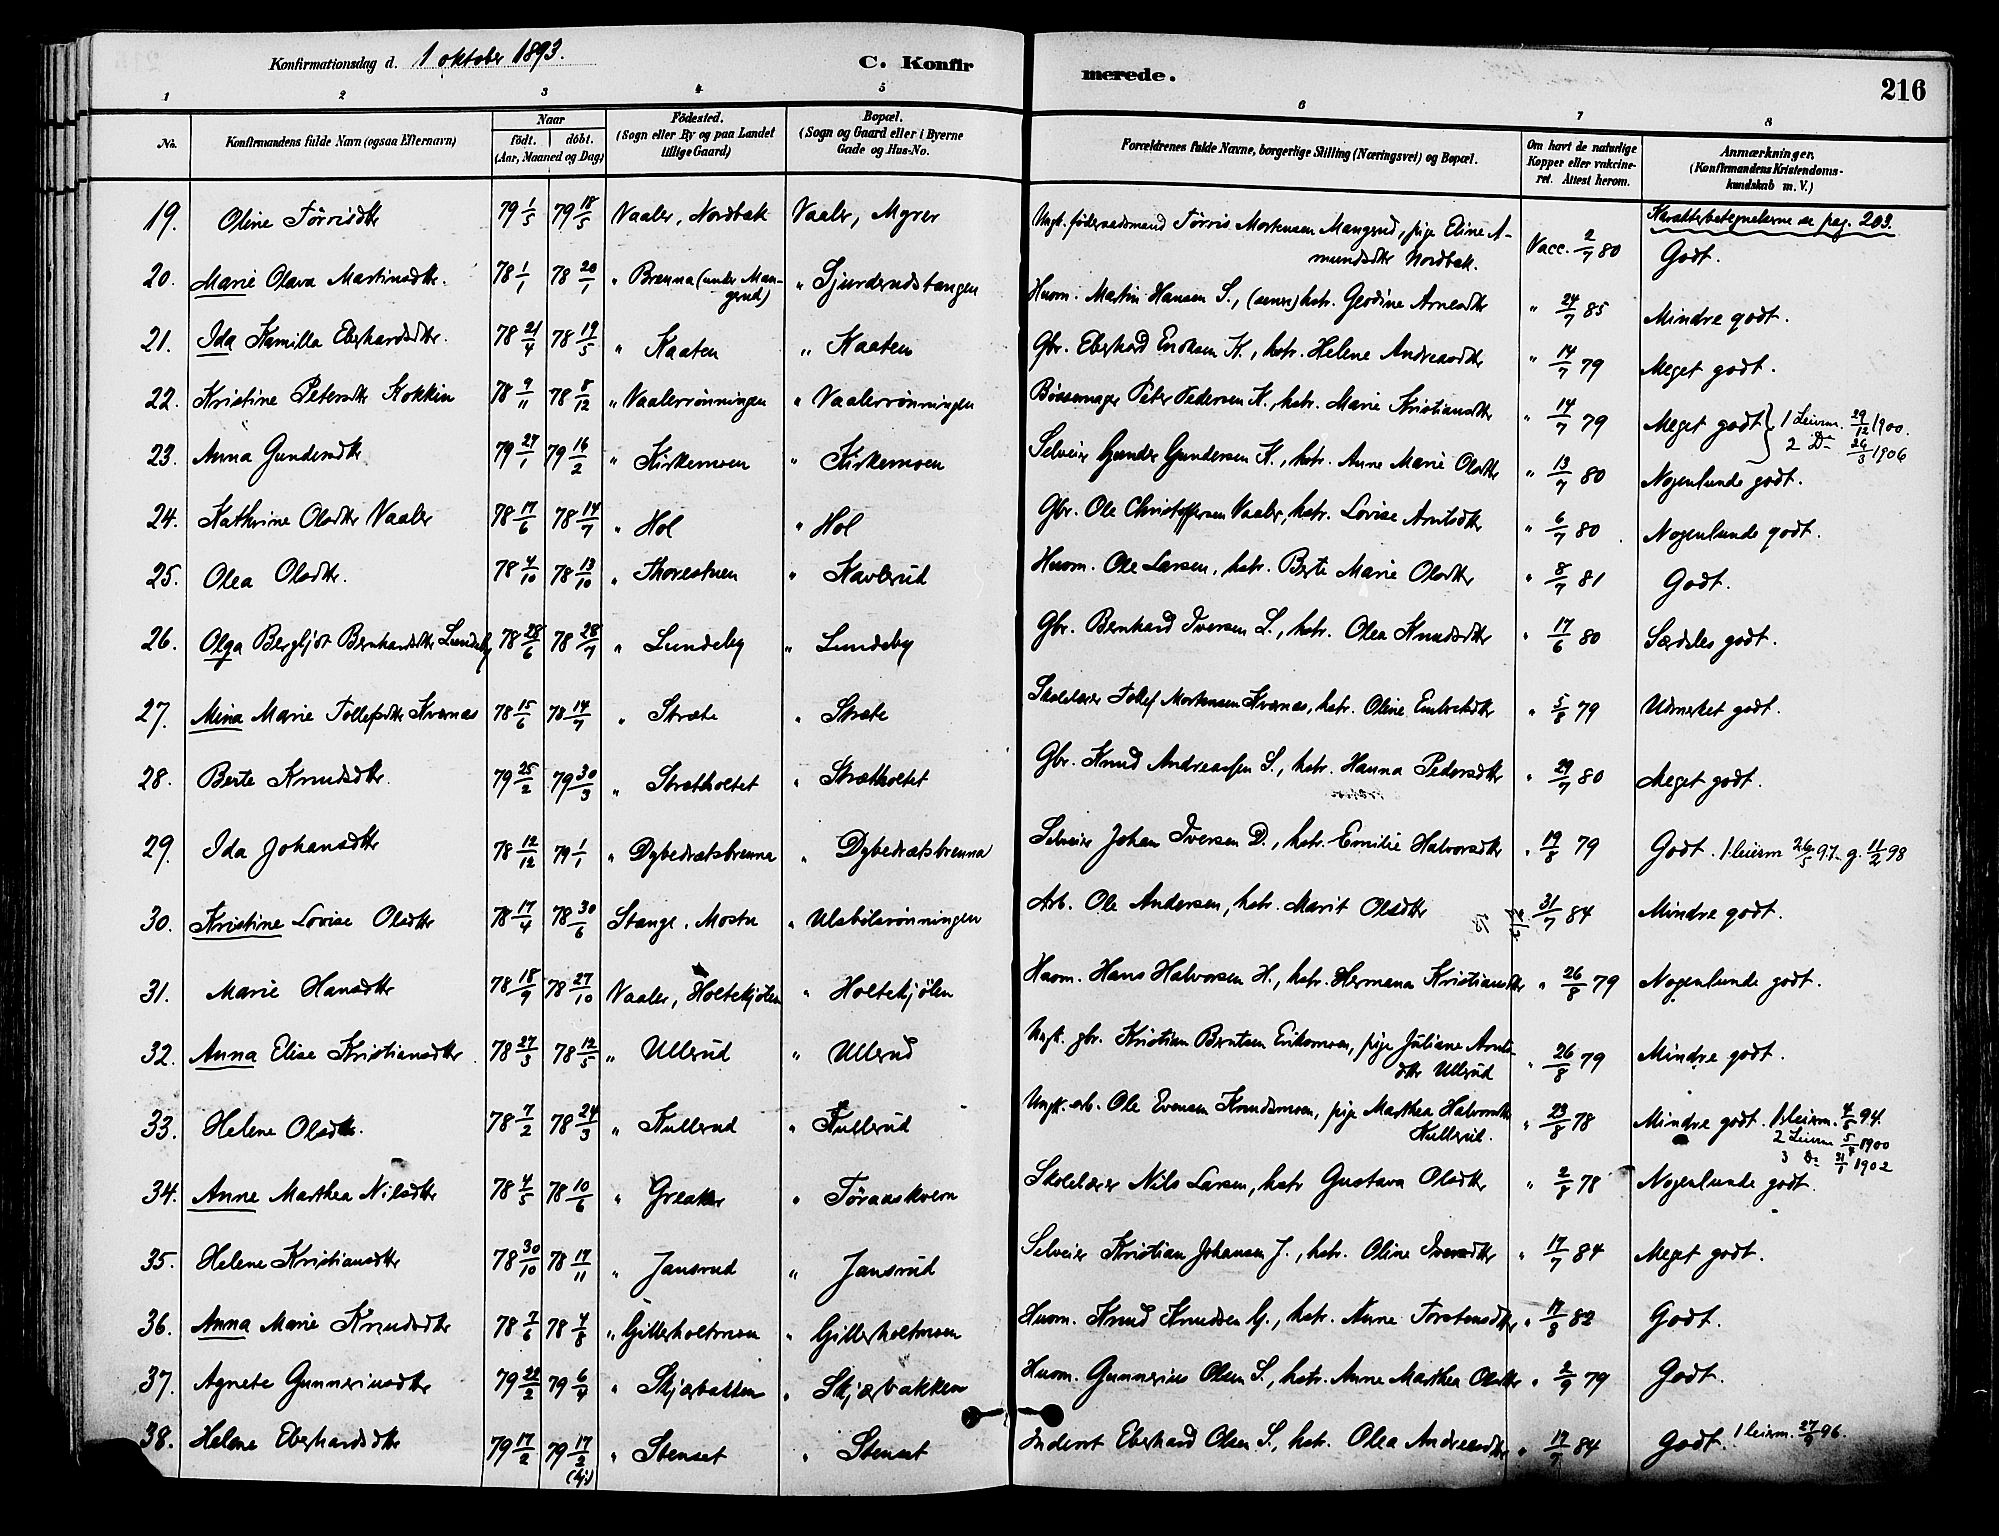 Konfirmationsdag d. 1 oktober 1893.
C. Konfirmerede.
216
1 2 3 4 5 6 7 8
No. Konfirmandens fulde Navn (ogsaa Efternavn) Naar födt. döbt. (Aar, Maaned og Dag) Födested. (Sogn eller By og paa Landet tillige Gaard) Bopæl. (Sogn og Gaard eller i Byerne Gade og Hus-No. Forældrenes fulde Navne, borgerlige Stilling (Næringsvei) og Bopæl. Om havt de naturlige Kopper eller vakcineret. Attest herom. Anmærkninger. (Konfirmandens Kristendomskundskab m. V.)
Karakterbetegnelserne se pag. 203.
19. Oline Törrisdtr 79 1/5 79 18/5 Vaaler, Nordbak Vaaler, Myrer Ungk. föderaadsmand Törris Mortensen Mangrud, pige Eline Amundsdtr Nordbak. Vacc. 2/7 80 Godt.
20. Marie Olava Martinsdtr. 78 1/1 78 20/1 " Brenna (under Mangrud) " Sjurderudstangen Husm. Martin Hansen S., (senere) hstr. Gerdine Arnesdtr " 24/7 85 Mindre godt.
21. Ida Kamilla Eberhardsdtr. 78 21/4 78 19/5 " Kaaten " Kaaten Gbr. Eberhard Enoksen K., hstr. Helene Andreasdtr " 14/7 79 Meget godt.
22. Kristine Petersdtr Kokkin 78 9/11 78 8/12 " Vaalerrönningen " Vaalerrönningen Bössemager Peter Pedersen K., hstr. Marie Kristiansdtr " 14/7 79 Meget godt } 1 Leierm. 29/12 1900. 2 Do 26/3 1906
23. Anna Gundersdtr 79 27/1 79 16/2 " Kirkemoen " Kirkemoen Selveier Gunder Gundersen K., hstr. Anne Marie Olsdtr " 13/7 80 Nogenlunde godt.
24. Kathrine Olsdtr Vaaler 78 17/6 78 14/7 " Hol " Hol Gbr. Ole Christoffersen Vaaler, hstr. Lovise Arntsdtr " 6/7 80 Nogenlunde godt.
25. Olea Olsdtr. 78 4/10 78 13/10 " Thorestuen " Kavlerud Husm. Ole Larsen, hstr. Berte Marie Olsdtr " 8/7 81 Godt.
26. Olga Bergljot Bernhardsdtr Lundeby 78 28/6 78 28/7 " Lundeby " Lundeby Gbr. Bernhard Iversen L., hstr. Olea Knudsdtr " 17/6 80 Særdeles godt.
27. Mina Marie Tollefsdtr Kvernæs 78 15/6 78 14/7 " Stræte " Stræte Skolelærer Tollef Mortensen Kvernæs, hstr. Oline Embretsdtr " 5/8 79 Udmerket godt.
28. Berte Knudsdtr. 79 25/2 79 30/3 " Strætholtet " Strætholtet Gbr. Knud Andreassen S., hstr. Hanna Pedersdtr " 29/7 80 Meget godt.
29. Ida Johansdtr 78 12/12 79 1/1 " Dybedratsbrenna " Dybedratsbrenna Selveier Johan Iversen D., hstr. Emilie Halvorsdtr " 19/8 79 Godt. 1 leierm 26/5 97. g. 11/2 98
30. Kristine Lovise Olsdtr 78 17/4 78 30/6 Stange, Mostu " Ulsbölrönningen Arb. Ole Andersen, hstr. Marit Olsdtr 31/7 84 Mindre godt.
31. Marie Hansdtr 78 18/9 78 27/10 Vaaler, Holtekjölen " Holtekjölen Husm. Hans Halvorsen H., hstr. Hermana Kristiansdtr " 26/8 79 Nogenlunde godt.
32. Anna Elise Kristiansdtr. 78 27/3 78 12/5 " Ullerud " Ullerud Ungk. gbr. Kristian Berntsen Eriksmoen, pige Juliane Arntsdtr Ullerud " 26/8 79 Mindre godt.
33. Helene Olsdtr. 78 7/2 78 24/3 " Kullerud " Kullerud Ungk. arb. Ole Evensen Knudsmoen, pige Marthea Halvorsdtr Kullerud. " 23/8 78 Mindre godt. 1 leierm. 4/6 94. 2 Leierm 5/8 1900 3 Do 31/1 1902
34. Anne Marthea Nilsdtr 78 4/5 78 10/6 " Greaker " Töraaskvern Skolelærer Nils Larsen, hstr Gustava Olsdtr " 2/8 78 Nogenlunde godt.
35. Helene Kristiansdtr 78 30/10 78 17/11 " Jansrud " Jansrud Selveier Kristian Johansen J., hstr. Oline Iversdtr " 17/7 84 Meget godt.
36. Anna Marie Knudsdtr 78 7/6 78 4/8 " Gillerholtmoen " Gillerholtmoen Husm. Knud Knudsen G., hstr. Anne Torstensdtr " 17/8 82 Godt.
37. Agnete Gunneriusdtr 79 22/2 79 6/4 " Skjærbakken " Skjærbakken Husm. Gunnerius Olsen S., hstr. Anne Marthea Olsdtr " 2/9 79 Godt.
38. Helene Eberhardsdtr 79 17/2 79 17/2 (hj:) " Stenset " Stenset Inderst Eberhard Olsen S., hstr. Olea Andreasdtr " 17/7 84 Godt. 1 leierm. 27/9 96.